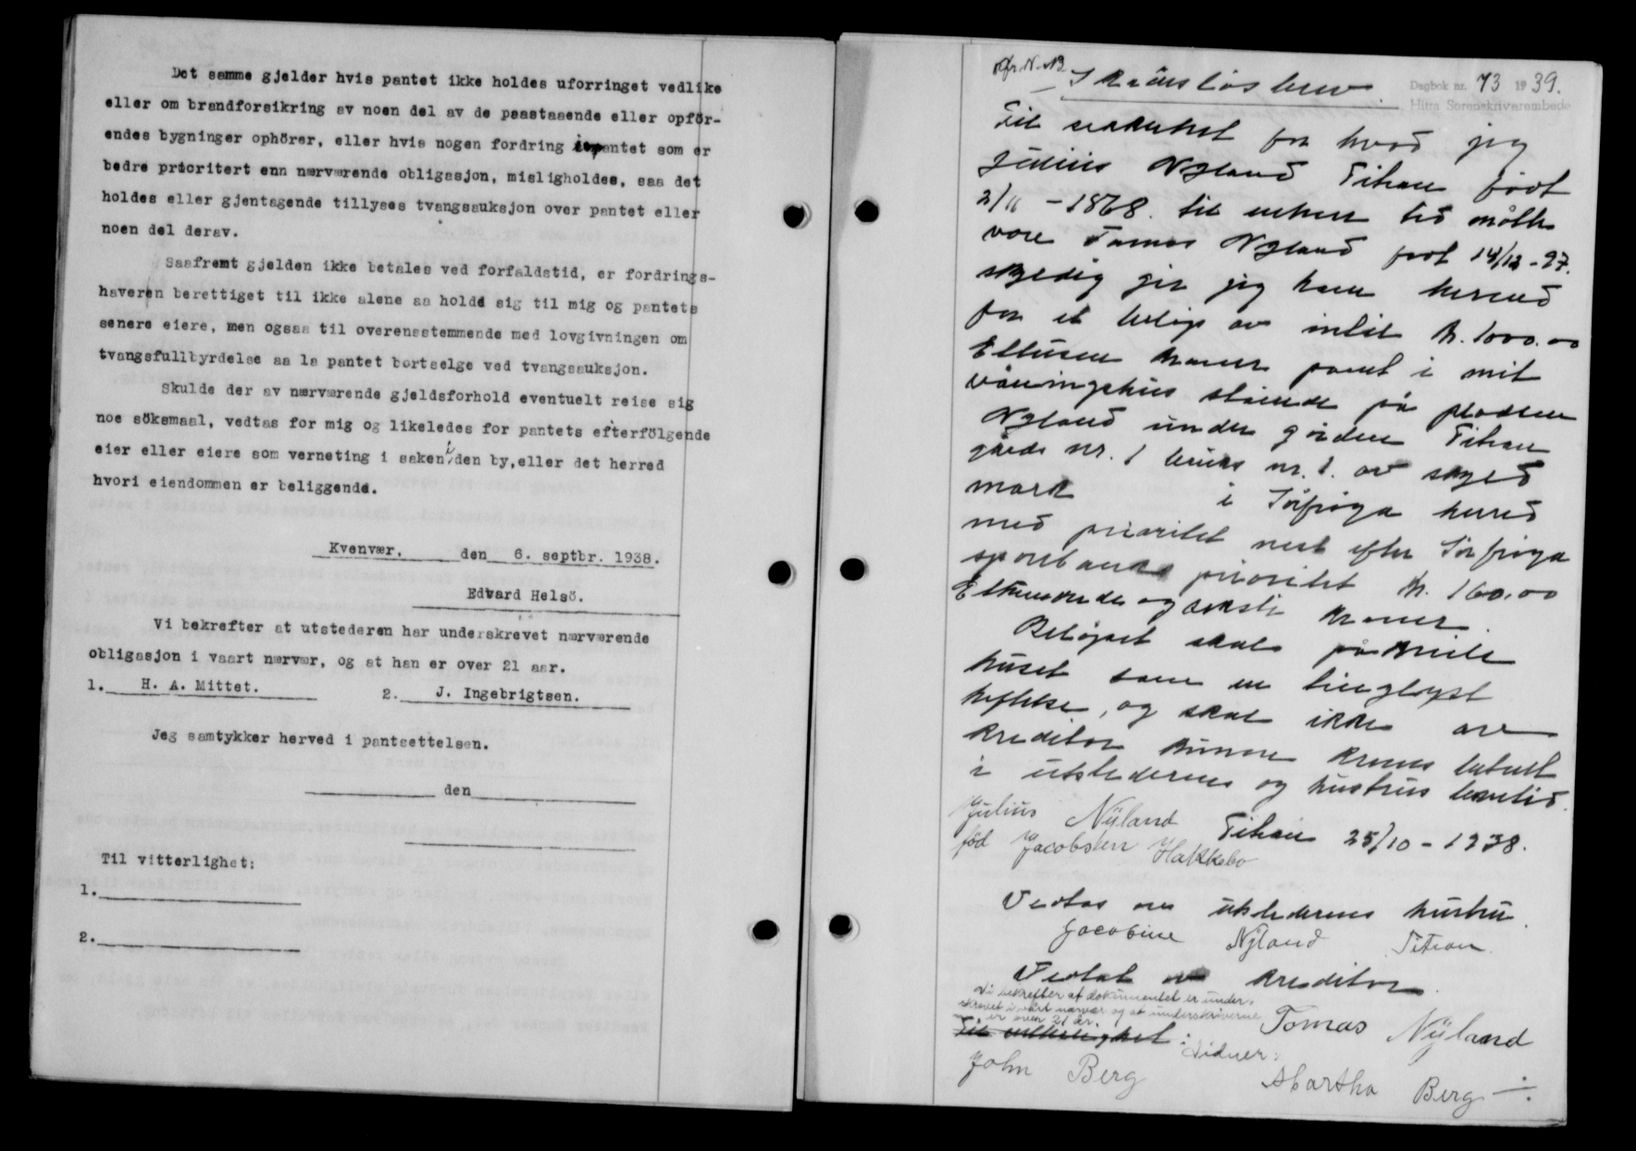 Det samme gjelder hvis pantet ikke holdes uforringet vedlike
eller om brandforsikring av noen del av de paastaaende eller opför-
endes bygninger ophörer, eller hvis nogen fordring i pantet som er
bedre prioritert enn nærværende obligasjon, misligholdes, saa det
holdes eller gjentagende tillyses tvangsauksjon over pantet eller
noen del derav.
Saafremt gjelden ikke betales ved forfaldstid, er fordrings-
haveren berettiget til ikke alene aa holde sig til mig og pantets
senere eiere, men ogsaa til overensstemmende med lovgivningen om
tvangsfullbyrdelse aa la pantet bortselge ved tvangsauksjon.
Skulde der av nærværende gjeldsforhold eventuelt reise sig
noe söksmaal, vedtas for mig og likeledes for pantets efterfölgende
eier eller eiere som verneting i saken, den by, eller det herred
hvori eiendommen er beliggende.
Kvenvær, den 6. septbr. 1938.
Edvard Helsö.
Vi bekrefter at utstederen har underskrevet nærværende
obligasjon i vaart nærvær, og at han er over 21 aar.
1. H. A. Mittet. 2. J. Ingebrigtsen.
Jeg samtykker herved i pantsettelsen.
den
Til vitterlighet:
1.
2.
Skadesløsbrev.
Dagbok nr. 73 1939.
Hitra Sorenskriverembede
Til sikkerhet for hvad jeg
Julius Nyland Titran født
2/11 - 1868. til enhver tid måtte
være Tomas Nyland født 14/12 - 97.
skyldig gir jeg ham herved
for et beløp av intil kr. 1000.00
Ettusen kroner pant i mit
våningshus stående på pladsen
Nyland under gården Titran
gårds nr. 1 bruks nr. 1. av skyld
mark i Sørfrøya herred
med prioritet nest efter Sør frøya
sparebanks prioritet kr. 160,00
Ethundrede og seksti kroner.
Beløpet skal påhvile
huset som en tinglyst
heftelse, og skal ikke av
kreditor kunne kreves betalt
i utstederens og hustrus levetid.
Titran 25/10 - 1938.
Julius Nyland
fød Jacobsen Hakkebo
Vedtas som utstederens hustru.
Jacobine Nyland Titran.
Vedtat av kreditor
Tomas Nyland
Vi bekrefter at dokumentet er under-
skrevet i vårt nærvær og at underskriverne
er over 21 år.
Til vitterlighet: Vidner:
John Berg Martha Berg